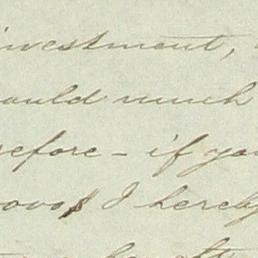 investment,
ould much
refore - if you
I hereby